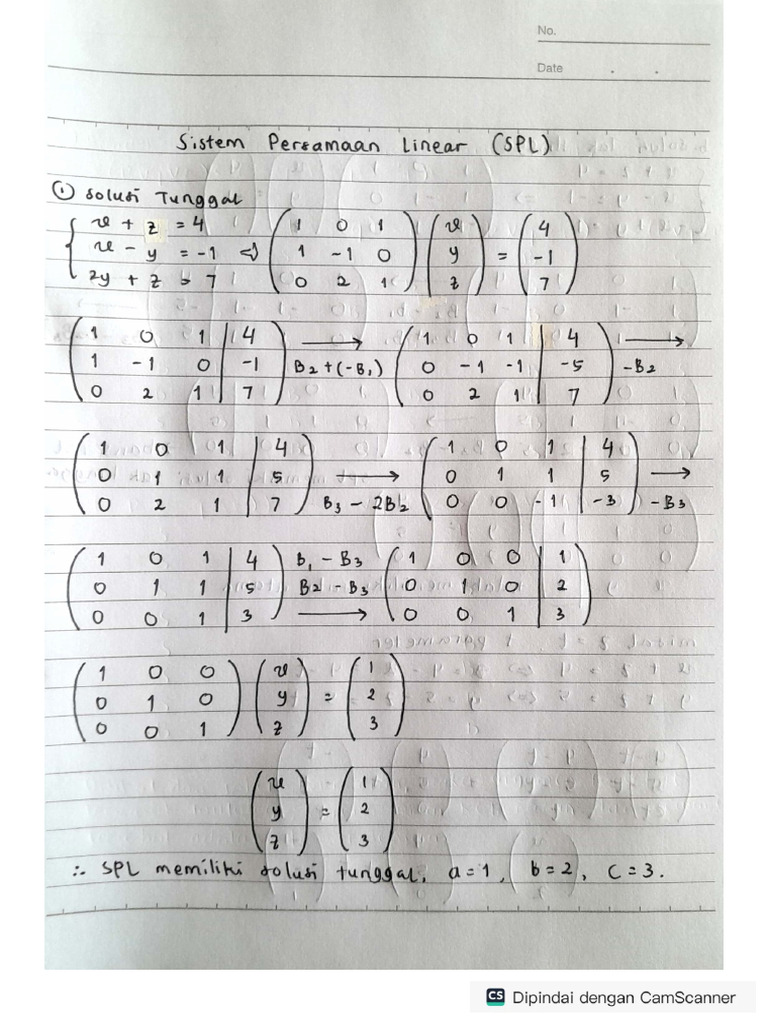 No.
Date
Sistem Persamaan Linear (SPL)
① Solusi Tunggal
{ x + z = 4
x - y = -1
2y + z = 7 ⇔ ( 1 0 1
1 -1 0
0 2 1 ) ( x
y
z ) = ( 4
-1
7 )
( 1 0 1 | 4
1 -1 0 | -1
0 2 1 | 7 ) → B2 + (-B1) ( 1 0 1 | 4
0 -1 -1 | -5
0 2 1 | 7 ) → -B2
( 1 0 1 | 4
0 1 1 | 5
0 2 1 | 7 ) → B3 - 2B2 ( 1 0 1 | 4
0 1 1 | 5
0 0 -1 | -3 ) → -B3
( 1 0 1 | 4
0 1 1 | 5
0 0 1 | 3 ) B1 - B3
B2 - B3
→ ( 1 0 0 | 1
0 1 0 | 2
0 0 1 | 3 )
( 1 0 0
0 1 0
0 0 1 ) ( x
y
z ) = ( 1
2
3 )
( x
y
z ) = ( 1
2
3 )
∴ SPL memiliki solusi tunggal, a = 1, b = 2, c = 3.
CS Dipindai dengan CamScanner